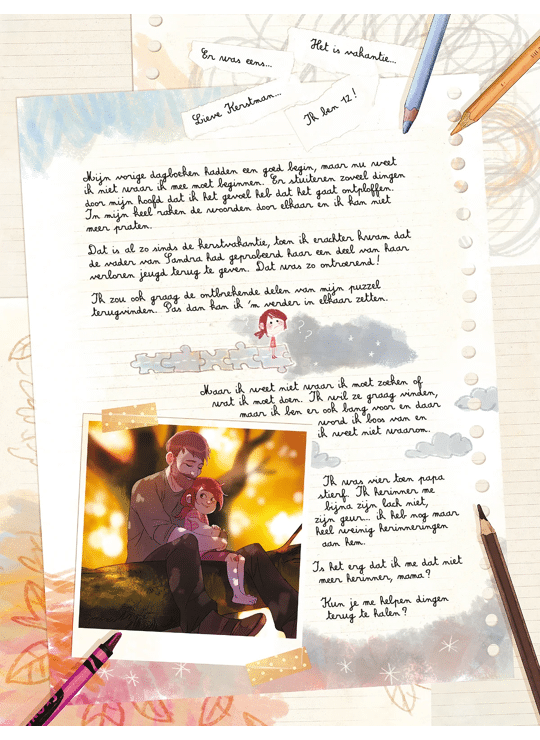 Er was eens...
Het is vakantie...
Lieve Kerstman...
Ik ben 12!
Mijn vorige dagboeken hadden een goed begin, maar nu weet
ik niet waar ik mee moet beginnen. Er stuiteren zoveel dingen
door mijn hoofd dat ik het gevoel heb dat het gaat ontploffen.
In mijn keel raken de woorden door elkaar en ik kan niet
meer praten.
Dat is al zo sinds de kerstvakantie, toen ik erachter kwam dat
de vader van Sandra had geprobeerd haar een deel van haar
verloren jeugd terug te geven. Dat was zo ontroerend!
Ik zou ook graag de ontbrekende delen van mijn puzzel
terugvinden. Pas dan kan ik 'm verder in elkaar zetten.
??
Maar ik weet niet waar ik moet zoeken of
wat ik moet doen. Ik wil ze graag vinden,
maar ik ben er ook bang voor en daar
word ik boos van en
ik weet niet waarom.
Ik was vier toen papa
stierf. Ik herinner me
bijna zijn lach niet,
zijn geur... ik heb nog maar
heel weinig herinneringen
aan hem.
Is het erg dat ik me dat niet
meer herinner, mama?
Kun je me helpen dingen
terug te halen?